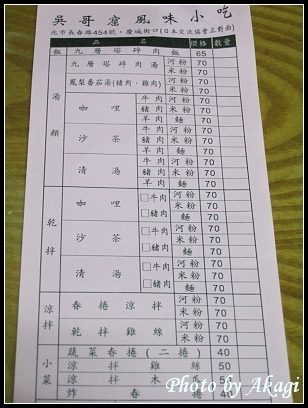 吳哥窟風味小吃
北市長春路454號,慶城街口(日本交流協會正對面)
品名 價格 數量
飯 九層塔碎肉飯 65
湯類 九層塔碎肉湯 河粉 70
米粉 70
鳳梨番茄湯(豬肉、雞肉) 河粉 70
米粉 70
咖哩 牛肉 河粉 70
豬肉 米粉 70
羊肉 麵 70
沙茶 牛肉 河粉 70
豬肉 米粉 70
羊肉 麵 70
清湯 牛肉 河粉 70
豬肉 米粉 70
羊肉 麵 70
乾拌 咖哩 □牛肉 □豬肉 河粉 70
米粉 70
麵 70
沙茶 □牛肉 □豬肉 河粉 70
米粉 70
麵 70
清湯 □牛肉 □豬肉 河粉 70
米粉 70
麵 70
涼拌 春捲涼拌 河粉 70
米粉 70
乾拌雞絲 河粉 70
米粉 70
小菜 蔬菜春捲(二捲) 40
涼拌雞絲 50
涼拌木 50
炸春捲 40
Photo by Akagi